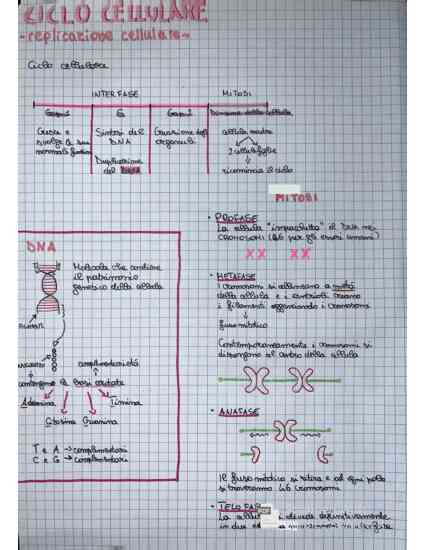 CICLO CELLULARE
-replicazione cellulare-
Ciclo cellulare
INTERFASE
MITOSI
Gap1
S
Gap2
Divisione della cellula
Cresce e
svolge le sue
normali funzioni
Sintesi del
DNA
Duplicazione
del DNA
organuli
cellula madre
2 cellule figlie
ricomincia il ciclo
MITOSI
• PROFASE
La cellula "impacchetta" il DNA nei
CROMOSOMI (46 per gli esseri umani)
XX XX
• METAFASE
I cromosomi si allineano a metà
della cellula e i centrioli creano
i filamenti agganciando i cromosomi
fuso mitotico
Contemporaneamente i cromosomi si
dispongono al centro della cellula
• ANAFASE
Il fuso mitotico si ritira e ad ogni polo
si troveranno 46 cromosomi
• TELOFASE
La cellula si divide definitivamente
in due
DNA
Molecola che contiene
il patrimonio
genetico della cellula
complementarietà
contengono le basi azotate
Adenina
Timina
Citosina Guanina
T e A → complementari
C e G → complementari